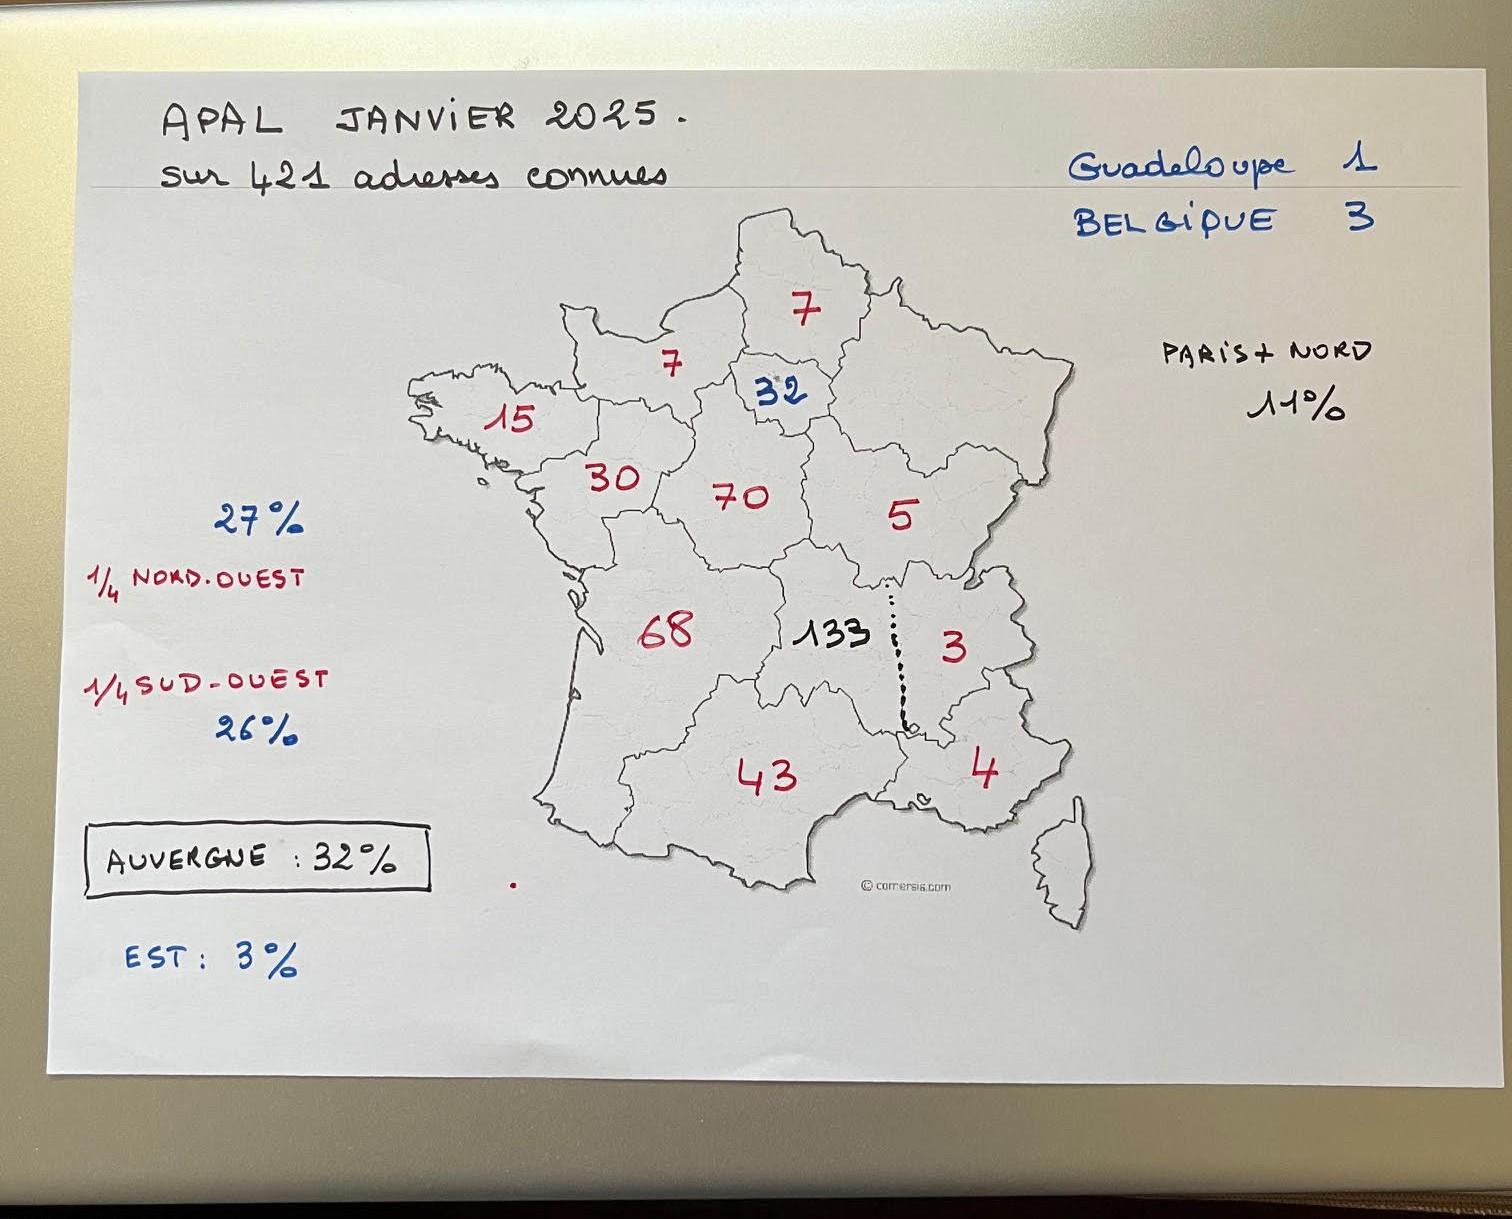 APAL JANViER 2025.
sur 421 adresses connues
Guadeloupe 1
BELGiQUE 3
7
PARiS + NORD
11%
7
32
15
30
70
5
27%
1/4 NORD.OUEST
68
133
3
1/4 SUD-OUEST
26%
43
4
AUVERGNE : 32%
© comersis.com
EST : 3%